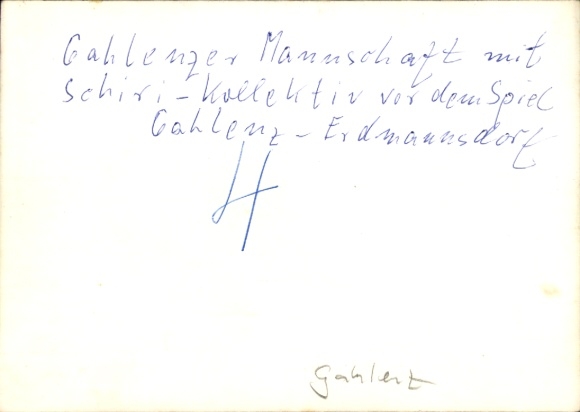 Gahlenzer Mannschaft mit
Schiri-Kollektiv vor dem Spiel
Gahlenz - Erdmannsdorf
H
Gahlenz